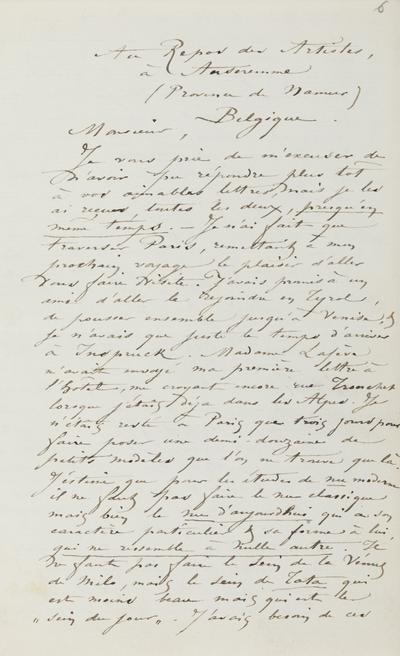 6
Au Repos des Artistes,
à Anseremme
(Province de Namur)
Belgique.
Monsieur,
Je vous prie de m'excuser de
n'avoir pu répondre plus tôt
à vos aimables lettres mais je les
ai reçues toutes les deux, presqu'en
même temps. — Je n'ai fait que
traverser Paris, remettant à mon
prochain voyage le plaisir d'aller
vous faire visite. J'avais promis à un
ami d'aller le rejoindre en Tyrol,
de pousser ensemble jusqu'à Venise, &
je n'avais que juste le temps d'arriver
à Inspruck. Madame
n'avait envoyé ma première lettre à
l'hôtel, me croyant encore rue Tronchet
lorsque j'étais déja dans les Alpes. Je
n'étais resté à Paris que trois jours pour
faire poser une demi douzaine de
petits modèles que l'on ne trouve que là.
J'estime que pour les études de nu moderne
il ne faut pas faire le nu classique
mais bien le nu d'aujourd'hui qui a son
caractère particulier & sa forme à lui,
qui ne ressemble à nulle autre. Il
ne faut pas faire le sein de la Vénus
de Milo, mais le sein de Tata qui
est moins beau mais qui est le
„sein du jour„. J'avais besoin de ces